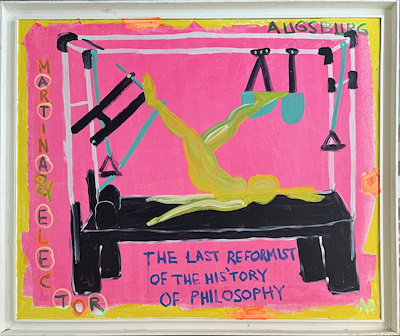 AUGSBURG
MARTINA & ELECTOR
THE LAST REFORMIST
OF THE HIS'TORY
OF PHILOSOPHY